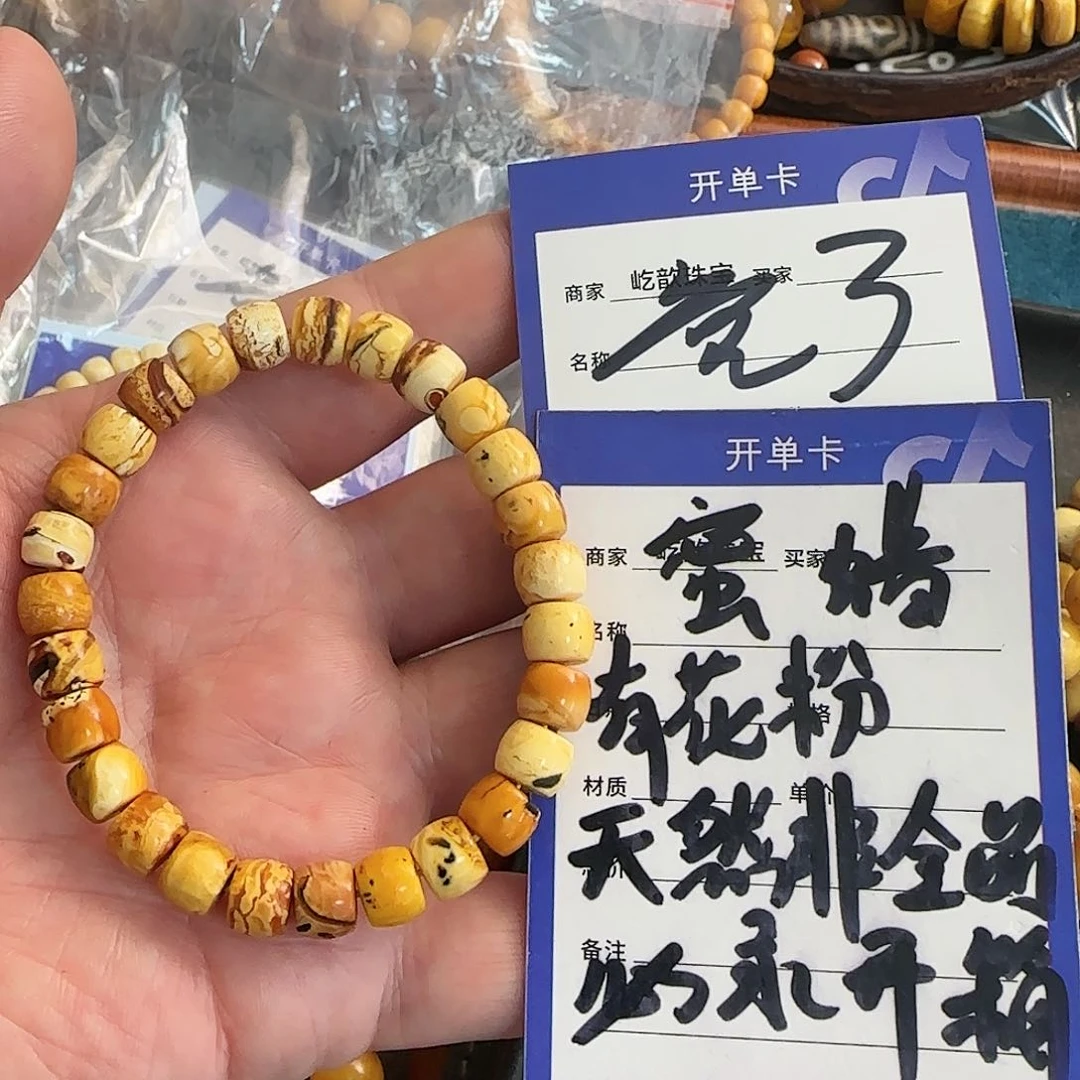 开单卡
商家 屹歆珠宝 买家
名称
亮了
开单卡
商家 买家
蜜蜡
名称
有花粉
材质 单价
天然非全品
备注
开箱